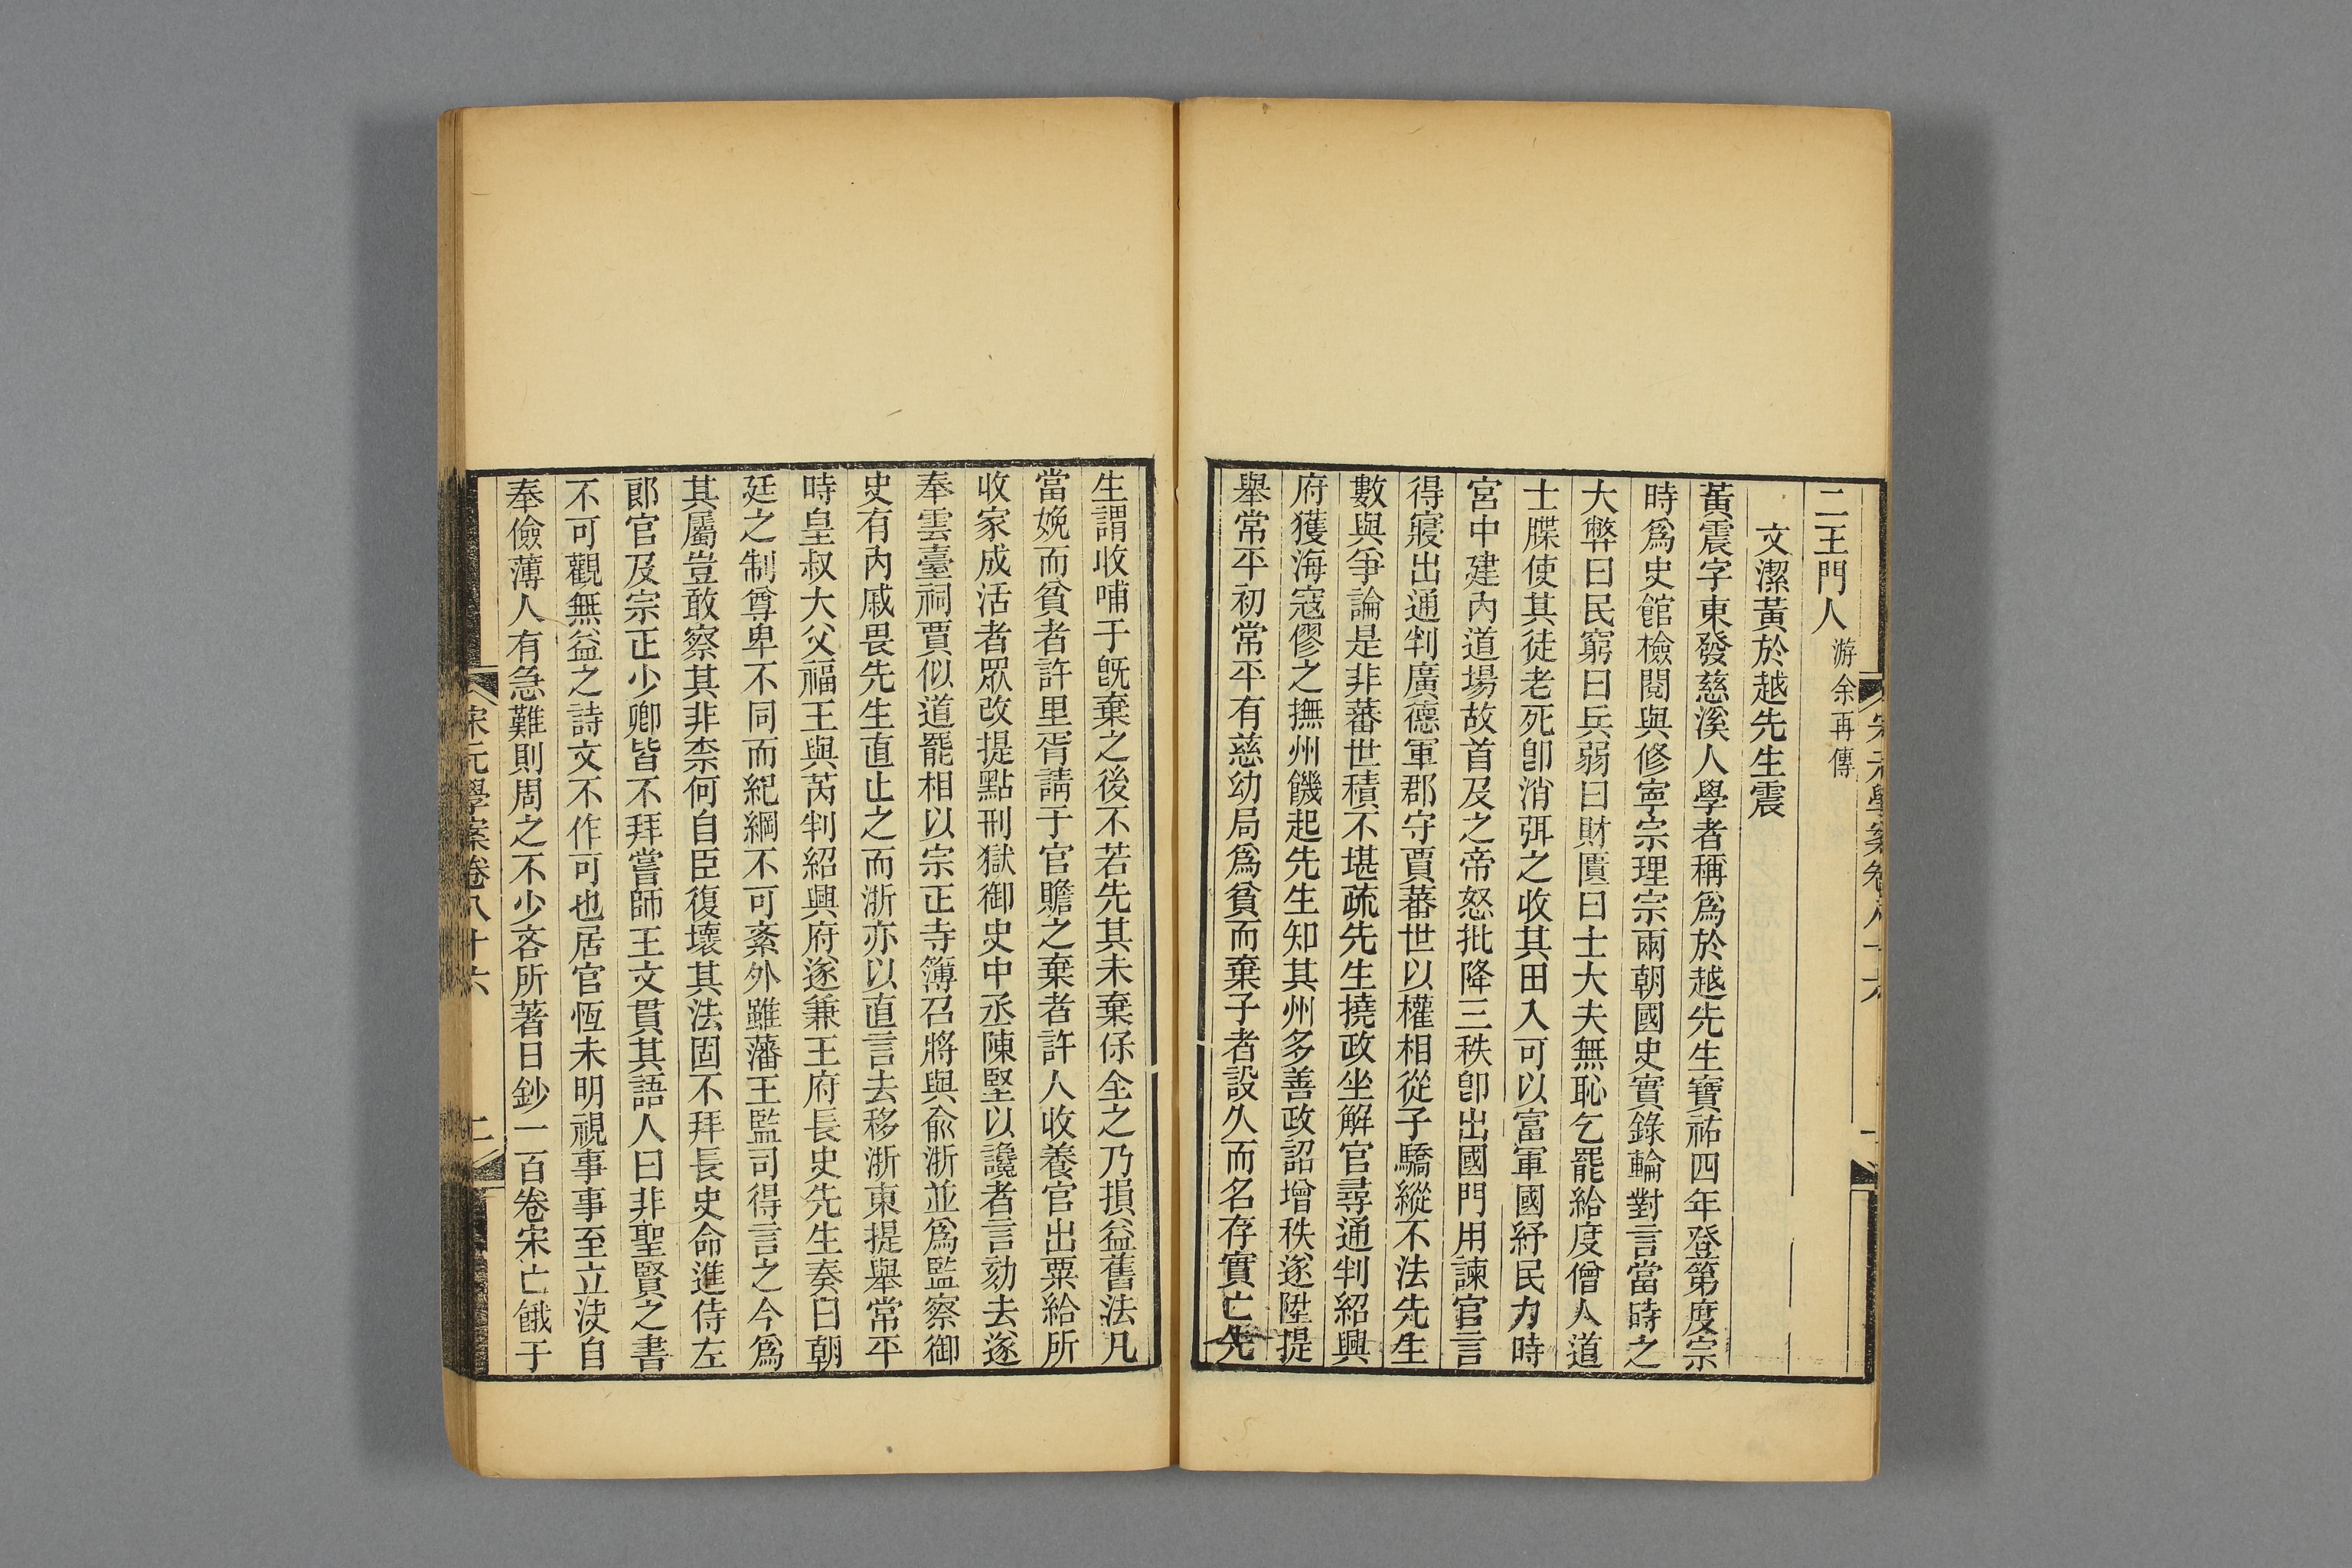 二王門人游余再傳
文潔黃於越先生震
黃震字東發慈溪人學者稱爲於越先生寶祐四年登第度宗
時爲史館檢閱與修寧宗理宗兩朝國史實錄輪對言當時之
大弊曰民窮曰兵弱曰財匱曰士大夫無恥乞罷給度僧人道
士牒使其徒老死卽消弭之收其田入可以富軍國紓民力時
宮中建內道場故首及之帝怒批降三秩卽出國門用諫官言
得寢出通判廣德軍郡守賈蕃世以權相從子驕縱不法先生
數與爭論是非蕃世積不堪疏先生撓政坐解官尋通判紹興
府獲海寇僇之撫州饑起先生知其州多善政詔增秩遂陞提
舉常平初常平有慈幼局爲貧而棄子者設久而名存實亡先
生謂收哺于旣棄之後不若先其未棄保全之乃損益舊法凡
當娩而貧者許里胥請于官贍之棄者許人收養官出粟給所
收家成活者眾改提點刑獄御史中丞陳堅以讒者言劾去遂
奉雲臺祠賈似道罷相以宗正寺簿召將與俞浙並爲監察御
史有內戚畏先生直止之而浙亦以直言去移浙東提舉常平
時皇叔大父福王與芮判紹興府遂兼王府長史先生奏曰朝
廷之制尊卑不同而紀綱不可紊外雖藩王監司得言之今爲
其屬豈敢察其非柰何自臣復壞其法固不拜長史命進侍左
郎官及宗正少卿皆不拜嘗師王文貫其語人曰非聖賢之書
不可觀無益之詩文不作可也居官恆未明視事事至立決自
奉儉薄人有急難則周之不少吝所著日鈔一百卷宋亡餓于
宋元學案卷八十六 二